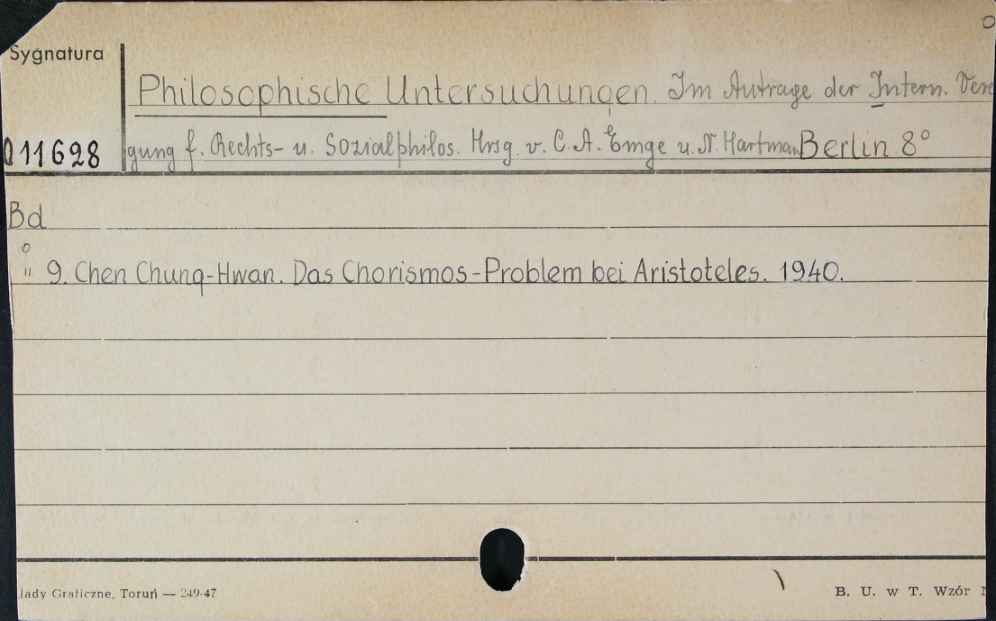 Sygnatura
Philosophische Untersuchungen. Im Autrage der Intern. Vere
Q 11628 gung f. Rechts- u. Sozialphilos. Hrsg. v. C. A. Emge u. N. Hartman Berlin 8°
Bd
" 9. Chen Chung-Hwan. Das Chorismos-Problem bei Aristoteles. 1940.
łady Graficzne, Toruń — 249-47
B. U. w T. Wzór